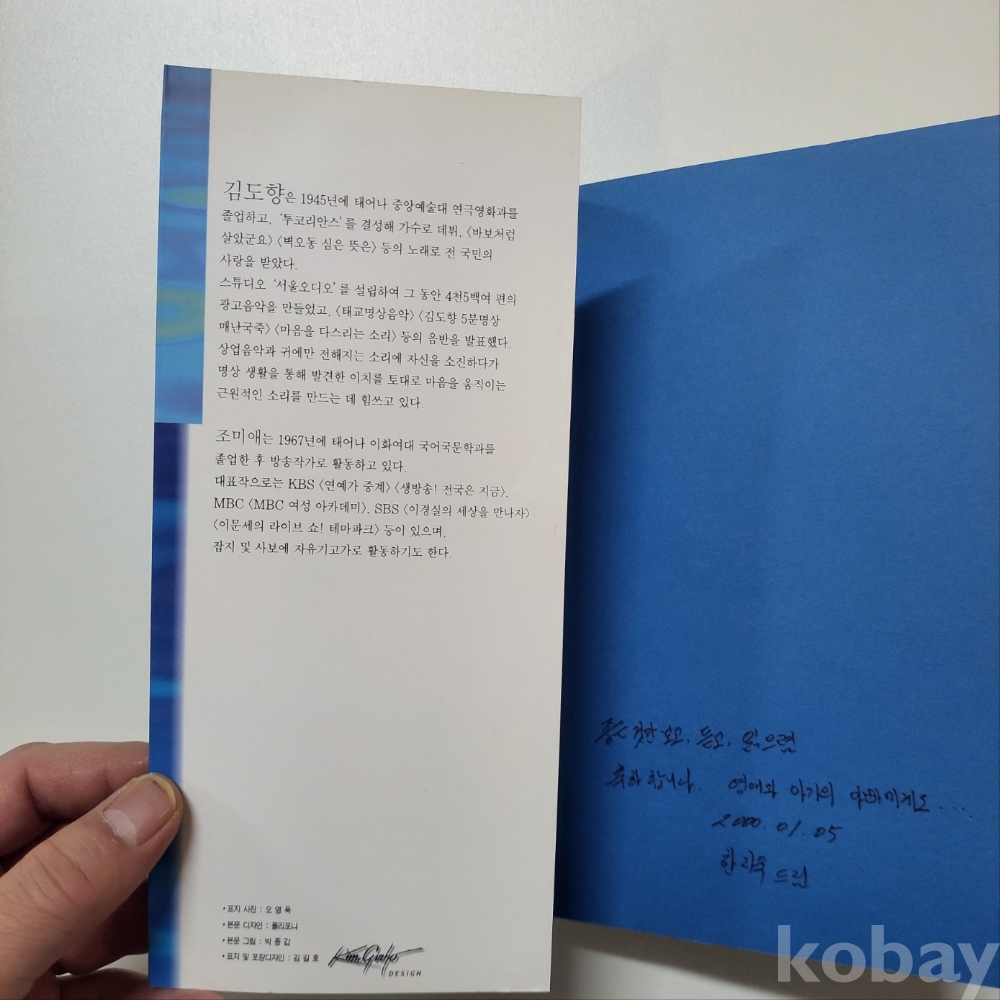 김도향은 1945년에 태어나 중앙예술대 연극영화과를
졸업하고, '투코리안스'를 결성해 가수로 데뷔, 〈바보처럼
살았군요〉 〈벽오동 심은 뜻은〉 등의 노래로 전 국민의
사랑을 받았다.
스튜디오 '서울오디오'를 설립하여 그 동안 4천5백여 편의
광고음악을 만들었고, 〈태교명상음악〉 〈김도향 5분명상
매난국죽〉 〈마음을 다스리는 소리〉 등의 음반을 발표했다.
상업음악과 귀에만 전해지는 소리에 자신을 소진하다가
명상 생활을 통해 발견한 이치를 토대로 마음을 움직이는
근원적인 소리를 만드는 데 힘쓰고 있다.
조미애는 1967년에 태어나 이화여대 국어국문학과를
졸업한 후 방송작가로 활동하고 있다.
대표작으로는 KBS 〈연예가 중계〉 〈생방송! 전국은 지금〉,
MBC 〈MBC 여성 아카데미〉, SBS 〈이경실의 세상을 만나자〉
〈이문세의 라이브 쇼! 테마파크〉 등이 있으며,
잡지 및 사보에 자유기고가로 활동하기도 한다.
• 표지 사진 : 오영욱
• 본문 디자인 : 폴리포니
• 본문 그림 : 박종갑
• 표지 및 포장디자인 : 김길호
DESIGN
좋은 것만 보고, 듣고, 읽으렴
축하합니다. 영애와 아가의 아빠에게도...
2000. 01. 05
드림
kobay